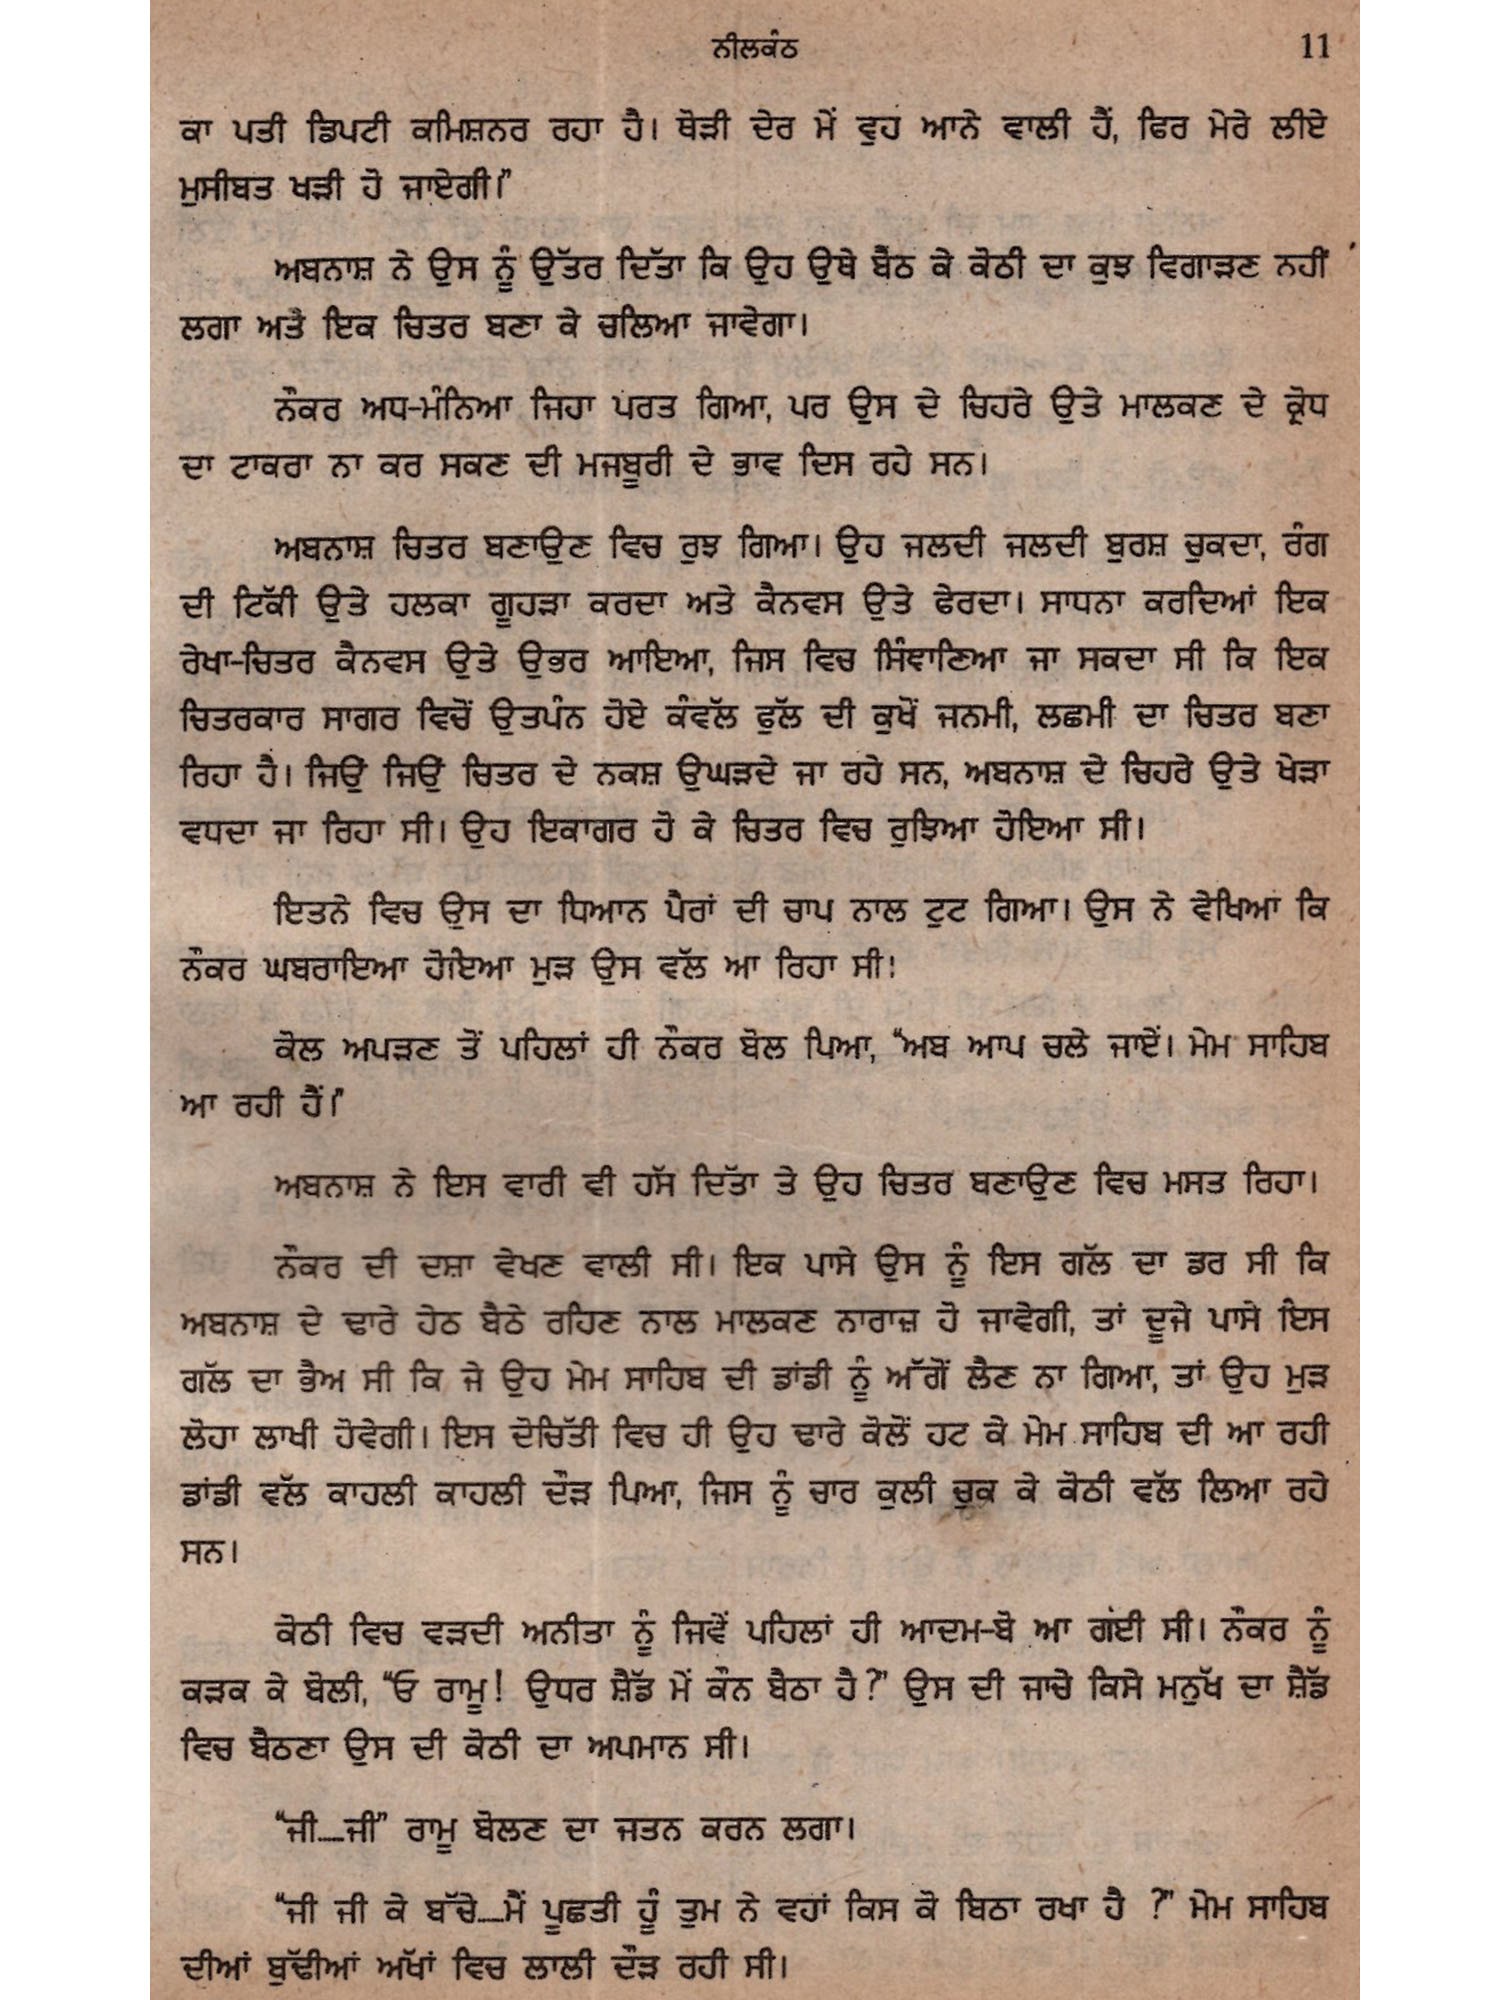 ਨੀਲਕੰਠ 11
ਕਾ ਪਤੀ ਡਿਪਟੀ ਕਮਿਸ਼ਨਰ ਰਹਾ ਹੈ। ਥੋੜੀ ਦੇਰ ਮੇਂ ਵੁਹ ਆਨੇ ਵਾਲੀ ਹੈਂ, ਫਿਰ ਮੇਰੇ ਲੀਏ
ਮੁਸੀਬਤ ਖੜੀ ਹੋ ਜਾਏਗੀ।”
ਅਬਨਾਸ਼ ਨੇ ਉਸ ਨੂੰ ਉੱਤਰ ਦਿੱਤਾ ਕਿ ਉਹ ਉਥੇ ਬੈਠ ਕੇ ਕੋਠੀ ਦਾ ਕੁਝ ਵਿਗਾੜਣ ਨਹੀਂ
ਲਗਾ ਅਤੇ ਇਕ ਚਿਤਰ ਬਣਾ ਕੇ ਚਲਿਆ ਜਾਵੇਗਾ।
ਨੌਕਰ ਅਧ-ਮੰਨਿਆ ਜਿਹਾ ਪਰਤ ਗਿਆ, ਪਰ ਉਸ ਦੇ ਚਿਹਰੇ ਉਤੇ ਮਾਲਕਣ ਦੇ ਕ੍ਰੋਧ
ਦਾ ਟਾਕਰਾ ਨਾ ਕਰ ਸਕਣ ਦੀ ਮਜਬੂਰੀ ਦੇ ਭਾਵ ਦਿਸ ਰਹੇ ਸਨ।
ਅਬਨਾਸ਼ ਚਿਤਰ ਬਣਾਉਣ ਵਿਚ ਰੁਝ ਗਿਆ। ਉਹ ਜਲਦੀ ਜਲਦੀ ਬੁਰਸ਼ ਚੁਕਦਾ, ਰੰਗ
ਦੀ ਟਿੱਕੀ ਉਤੇ ਹਲਕਾ ਗੂਹੜਾ ਕਰਦਾ ਅਤੇ ਕੈਨਵਸ ਉਤੇ ਫੇਰਦਾ। ਸਾਧਨਾ ਕਰਦਿਆਂ ਇਕ
ਰੇਖਾ-ਚਿਤਰ ਕੈਨਵਸ ਉਤੇ ਉਭਰ ਆਇਆ, ਜਿਸ ਵਿਚ ਸਿੰਞਾਣਿਆ ਜਾ ਸਕਦਾ ਸੀ ਕਿ ਇਕ
ਚਿਤਰਕਾਰ ਸਾਗਰ ਵਿਚੋਂ ਉਤਪੰਨ ਹੋਏ ਕੰਵੱਲ ਫੁੱਲ ਦੀ ਕੁਖੋਂ ਜਨਮੀ, ਲਛਮੀ ਦਾ ਚਿਤਰ ਬਣਾ
ਰਿਹਾ ਹੈ। ਜਿਉਂ ਜਿਉਂ ਚਿਤਰ ਦੇ ਨਕਸ਼ ਉਘੜਦੇ ਜਾ ਰਹੇ ਸਨ, ਅਬਨਾਸ਼ ਦੇ ਚਿਹਰੇ ਉਤੇ ਖੇੜਾ
ਵਧਦਾ ਜਾ ਰਿਹਾ ਸੀ। ਉਹ ਇਕਾਗਰ ਹੋ ਕੇ ਚਿਤਰ ਵਿਚ ਰੁਝਿਆ ਹੋਇਆ ਸੀ।
ਇਤਨੇ ਵਿਚ ਉਸ ਦਾ ਧਿਆਨ ਪੈਰਾਂ ਦੀ ਚਾਪ ਨਾਲ ਟੁਟ ਗਿਆ। ਉਸ ਨੇ ਵੇਖਿਆ ਕਿ
ਨੌਕਰ ਘਬਰਾਇਆ ਹੋਇਆ ਮੁੜ ਉਸ ਵੱਲ ਆ ਰਿਹਾ ਸੀ!
ਕੋਲ ਅਪੜਣ ਤੋਂ ਪਹਿਲਾਂ ਹੀ ਨੌਕਰ ਬੋਲ ਪਿਆ, “ਅਬ ਆਪ ਚਲੇ ਜਾਏਂ। ਮੇਮ ਸਾਹਿਬ
ਆ ਰਹੀ ਹੈਂ।”
ਅਬਨਾਸ਼ ਨੇ ਇਸ ਵਾਰੀ ਵੀ ਹੱਸ ਦਿੱਤਾ ਤੇ ਉਹ ਚਿਤਰ ਬਣਾਉਣ ਵਿਚ ਮਸਤ ਰਿਹਾ।
ਨੌਕਰ ਦੀ ਦਸ਼ਾ ਵੇਖਣ ਵਾਲੀ ਸੀ। ਇਕ ਪਾਸੇ ਉਸ ਨੂੰ ਇਸ ਗੱਲ ਦਾ ਡਰ ਸੀ ਕਿ
ਅਬਨਾਸ਼ ਦੇ ਢਾਰੇ ਹੇਠ ਬੈਠੇ ਰਹਿਣ ਨਾਲ ਮਾਲਕਣ ਨਾਰਾਜ਼ ਹੋ ਜਾਵੇਗੀ, ਤਾਂ ਦੂਜੇ ਪਾਸੇ ਇਸ
ਗੱਲ ਦਾ ਭੈਅ ਸੀ ਕਿ ਜੇ ਉਹ ਮੇਮ ਸਾਹਿਬ ਦੀ ਡਾਂਡੀ ਨੂੰ ਅੱਗੋਂ ਲੈਣ ਨਾ ਗਿਆ, ਤਾਂ ਉਹ ਮੁੜ
ਲੋਹਾ ਲਾਖੀ ਹੋਵੇਗੀ। ਇਸ ਦੋਚਿੱਤੀ ਵਿਚ ਹੀ ਉਹ ਢਾਰੇ ਕੋਲੋਂ ਹਟ ਕੇ ਮੇਮ ਸਾਹਿਬ ਦੀ ਆ ਰਹੀ
ਡਾਂਡੀ ਵੱਲ ਕਾਹਲੀ ਕਾਹਲੀ ਦੌੜ ਪਿਆ, ਜਿਸ ਨੂੰ ਚਾਰ ਕੁਲੀ ਚੁਕ ਕੇ ਕੋਠੀ ਵੱਲ ਲਿਆ ਰਹੇ
ਸਨ।
ਕੋਠੀ ਵਿਚ ਵੜਦੀ ਅਨੀਤਾ ਨੂੰ ਜਿਵੇਂ ਪਹਿਲਾਂ ਹੀ ਆਦਮ-ਬੋ ਆ ਗਈ ਸੀ। ਨੌਕਰ ਨੂੰ
ਕੜਕ ਕੇ ਬੋਲੀ, “ਓ ਰਾਮੂ! ਉਧਰ ਸ਼ੈੱਡ ਮੇਂ ਕੌਨ ਬੈਠਾ ਹੈ?” ਉਸ ਦੀ ਜਾਚੇ ਕਿਸੇ ਮਨੁੱਖ ਦਾ ਸ਼ੈੱਡ
ਵਿਚ ਬੈਠਣਾ ਉਸ ਦੀ ਕੋਠੀ ਦਾ ਅਪਮਾਨ ਸੀ।
“ਜੀ....ਜੀ” ਰਾਮੂ ਬੋਲਣ ਦਾ ਜਤਨ ਕਰਨ ਲਗਾ।
“ਜੀ ਜੀ ਕੇ ਬੱਚੇ....ਮੈਂ ਪੂਛਤੀ ਹੂੰ ਤੁਮ ਨੇ ਵਹਾਂ ਕਿਸ ਕੋ ਬਿਠਾ ਰਖਾ ਹੈ ?” ਮੇਮ ਸਾਹਿਬ
ਦੀਆਂ ਬੁੱਢੀਆਂ ਅੱਖਾਂ ਵਿਚ ਲਾਲੀ ਦੌੜ ਰਹੀ ਸੀ।